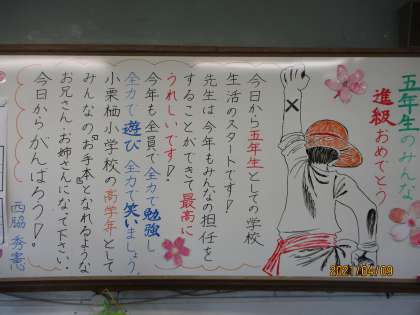 五年生のみんな
進級おめでとう
今日から五年生としての学校
生活のスタートです!
先生は今年もみんなの担任を
することができて最高に
うれしいです!!
今年も全員で全力で勉強し
全力で遊び全力で笑いましょう。
小栗栖小学校の高学年として
みんなの『お手本』となれるような
お兄さん・お姉さんになって下さい。
今日からがんばろう!!。
西脇 秀憲
2021/04/09